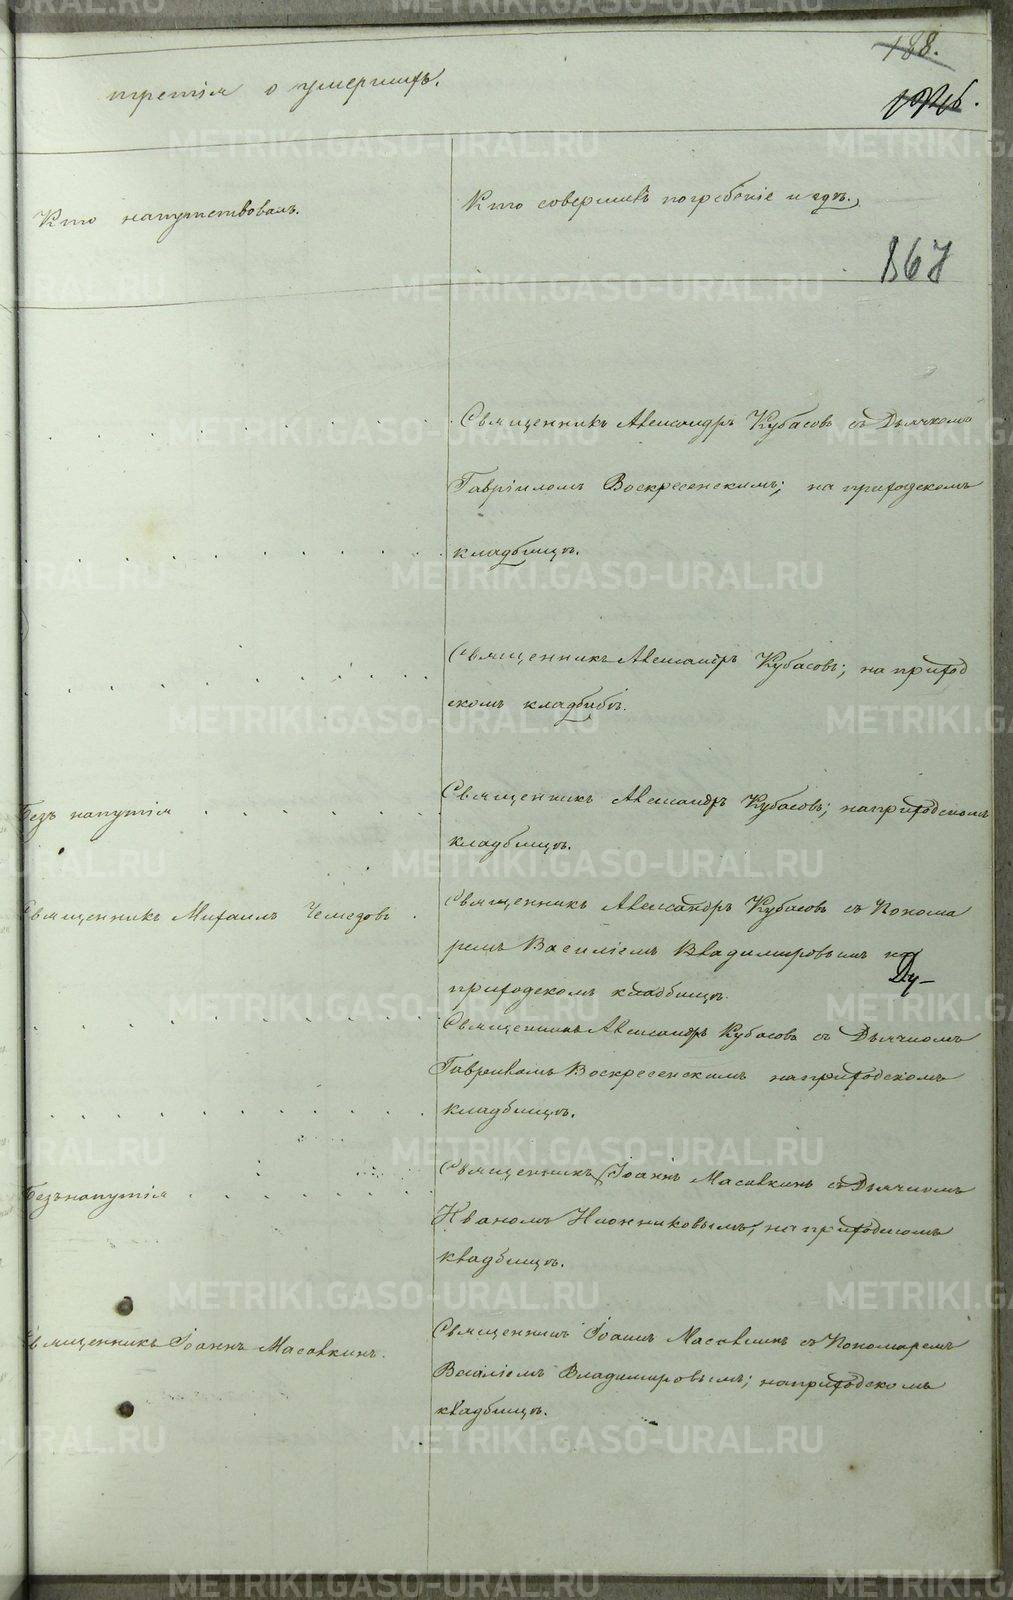 188.
третія о умершихъ.
Кто напутствовалъ.
Кто совершилъ погребеніе и гдѣ.
867
Священникъ Александръ Кубасовъ съ Дьячкомъ
Гавріиломъ Воскресенскимъ; на приходскомъ
кладбищѣ.
Священникъ Александръ Кубасовъ; на приход
скомъ кладбищѣ.
Безъ напутія
Священникъ Александръ Кубасовъ; на приходскомъ
кладбищѣ.
Священникъ Михаилъ Чемезовъ
Священникъ Александръ Кубасовъ съ Понома
ремъ Василіемъ Владимировымъ на
приходскомъ кладбищѣ.
Священникъ Александръ Кубасовъ съ Дьячкомъ
Гавріиломъ Воскресенскимъ на приходскомъ
кладбищѣ.
Безъ напутія
Священникъ Іоаннъ Масалкинъ съ Дьячкомъ
Иваномъ на приходскомъ
кладбищѣ.
Священникъ Іоаннъ Масалкинъ.
Священникъ Іоаннъ Масалкинъ съ Пономаремъ
Василіемъ Владимировымъ; на приходскомъ
кладбищѣ.
METRIKI.GASO-URAL.RU